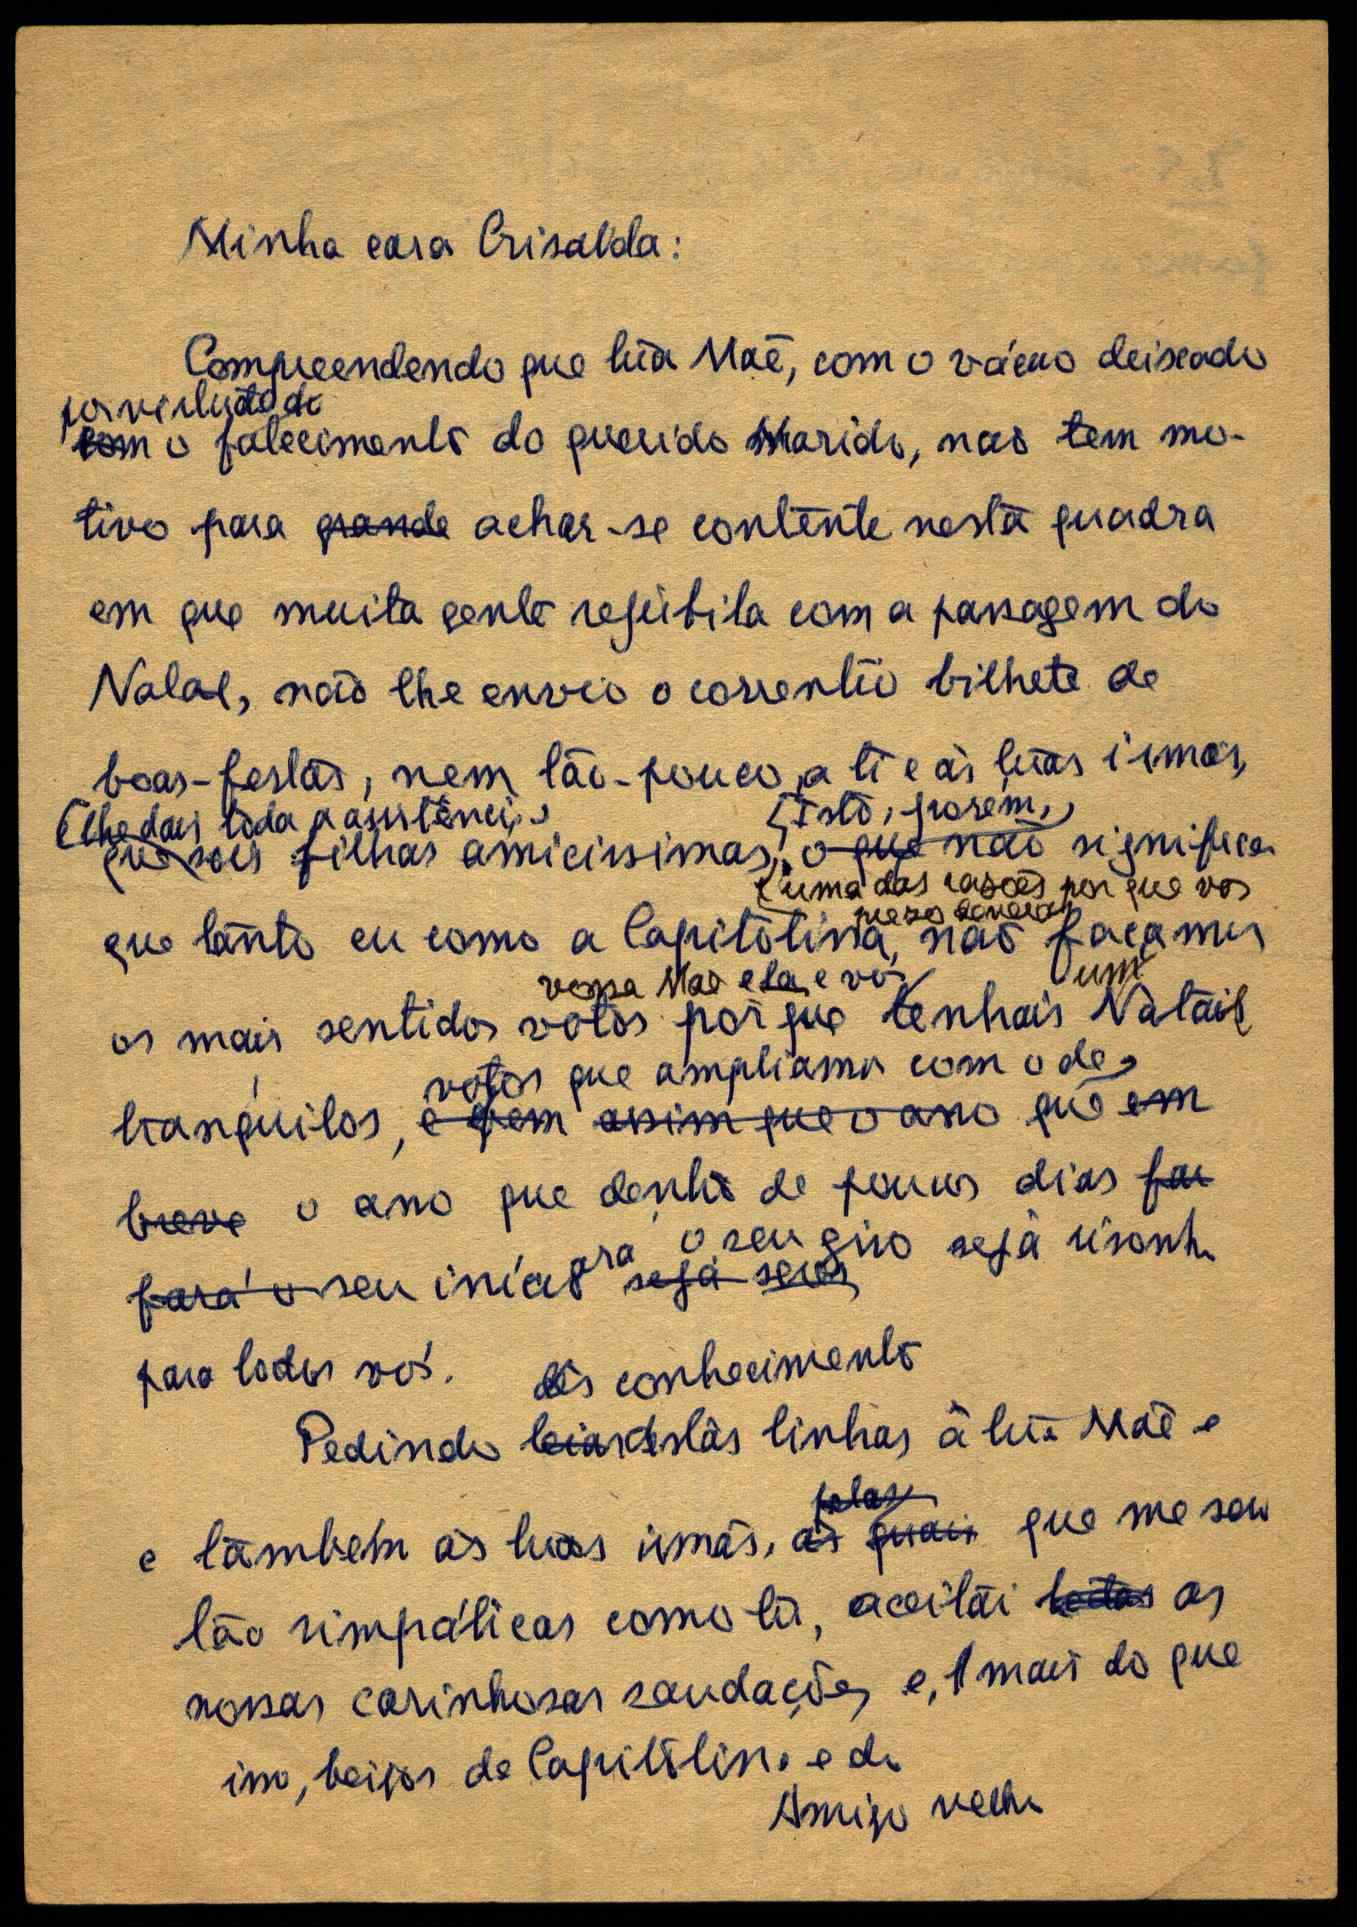 Minha cara Crisalda:
Compreendendo que tua Mãe, com o vácuo deixado
por virtude do
com o falecimento do querido Marido, não tem mo-
tivo para grande achar-se contente nesta quadra
em que muita gente rejubila com a passagem do
Natal, não lhe envio o corrente bilhete de
boas-festas, nem tão-pouco a ti e às tuas irmãs,
lhe dais toda a assistência
Isto, porém,
que sois filhas amicissimas, o que não significa
uma das rasões por que vos
prezo
que tanto eu como a Capitolina, não façamos
vossa Mãe e vós
um
os mais sentidos votos por que tenhais Natais
votos que ampliamos com o de
tranquilos, e bem assim que o ano que em
breve o ano que dentro de poucos dias
fará o seu início
ora o seu giro seja risonho
seja
para todos vós.
dês conhecimento
Pedindo destas linhas à tua Mãe e
pelas
e também às tuas irmãs, as quais que me são
tão simpáticas como tu, aceitai as
nossas carinhosas saudações e, mais do que
isso, beijos de Capitolina e do
Amigo velho